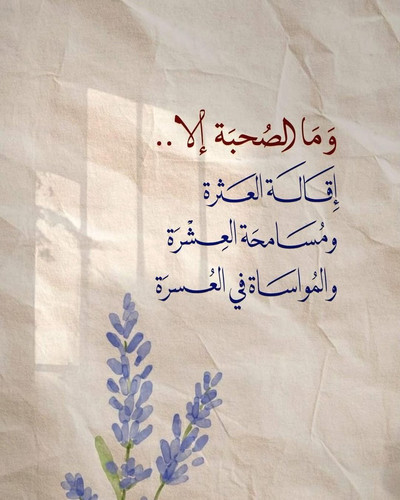 وَمَا الصُحبَة إلا ..
إِقَالَة العَثرة
ومُسَامحَة العِشْرَة
والمُواسَاة في العُسرَة